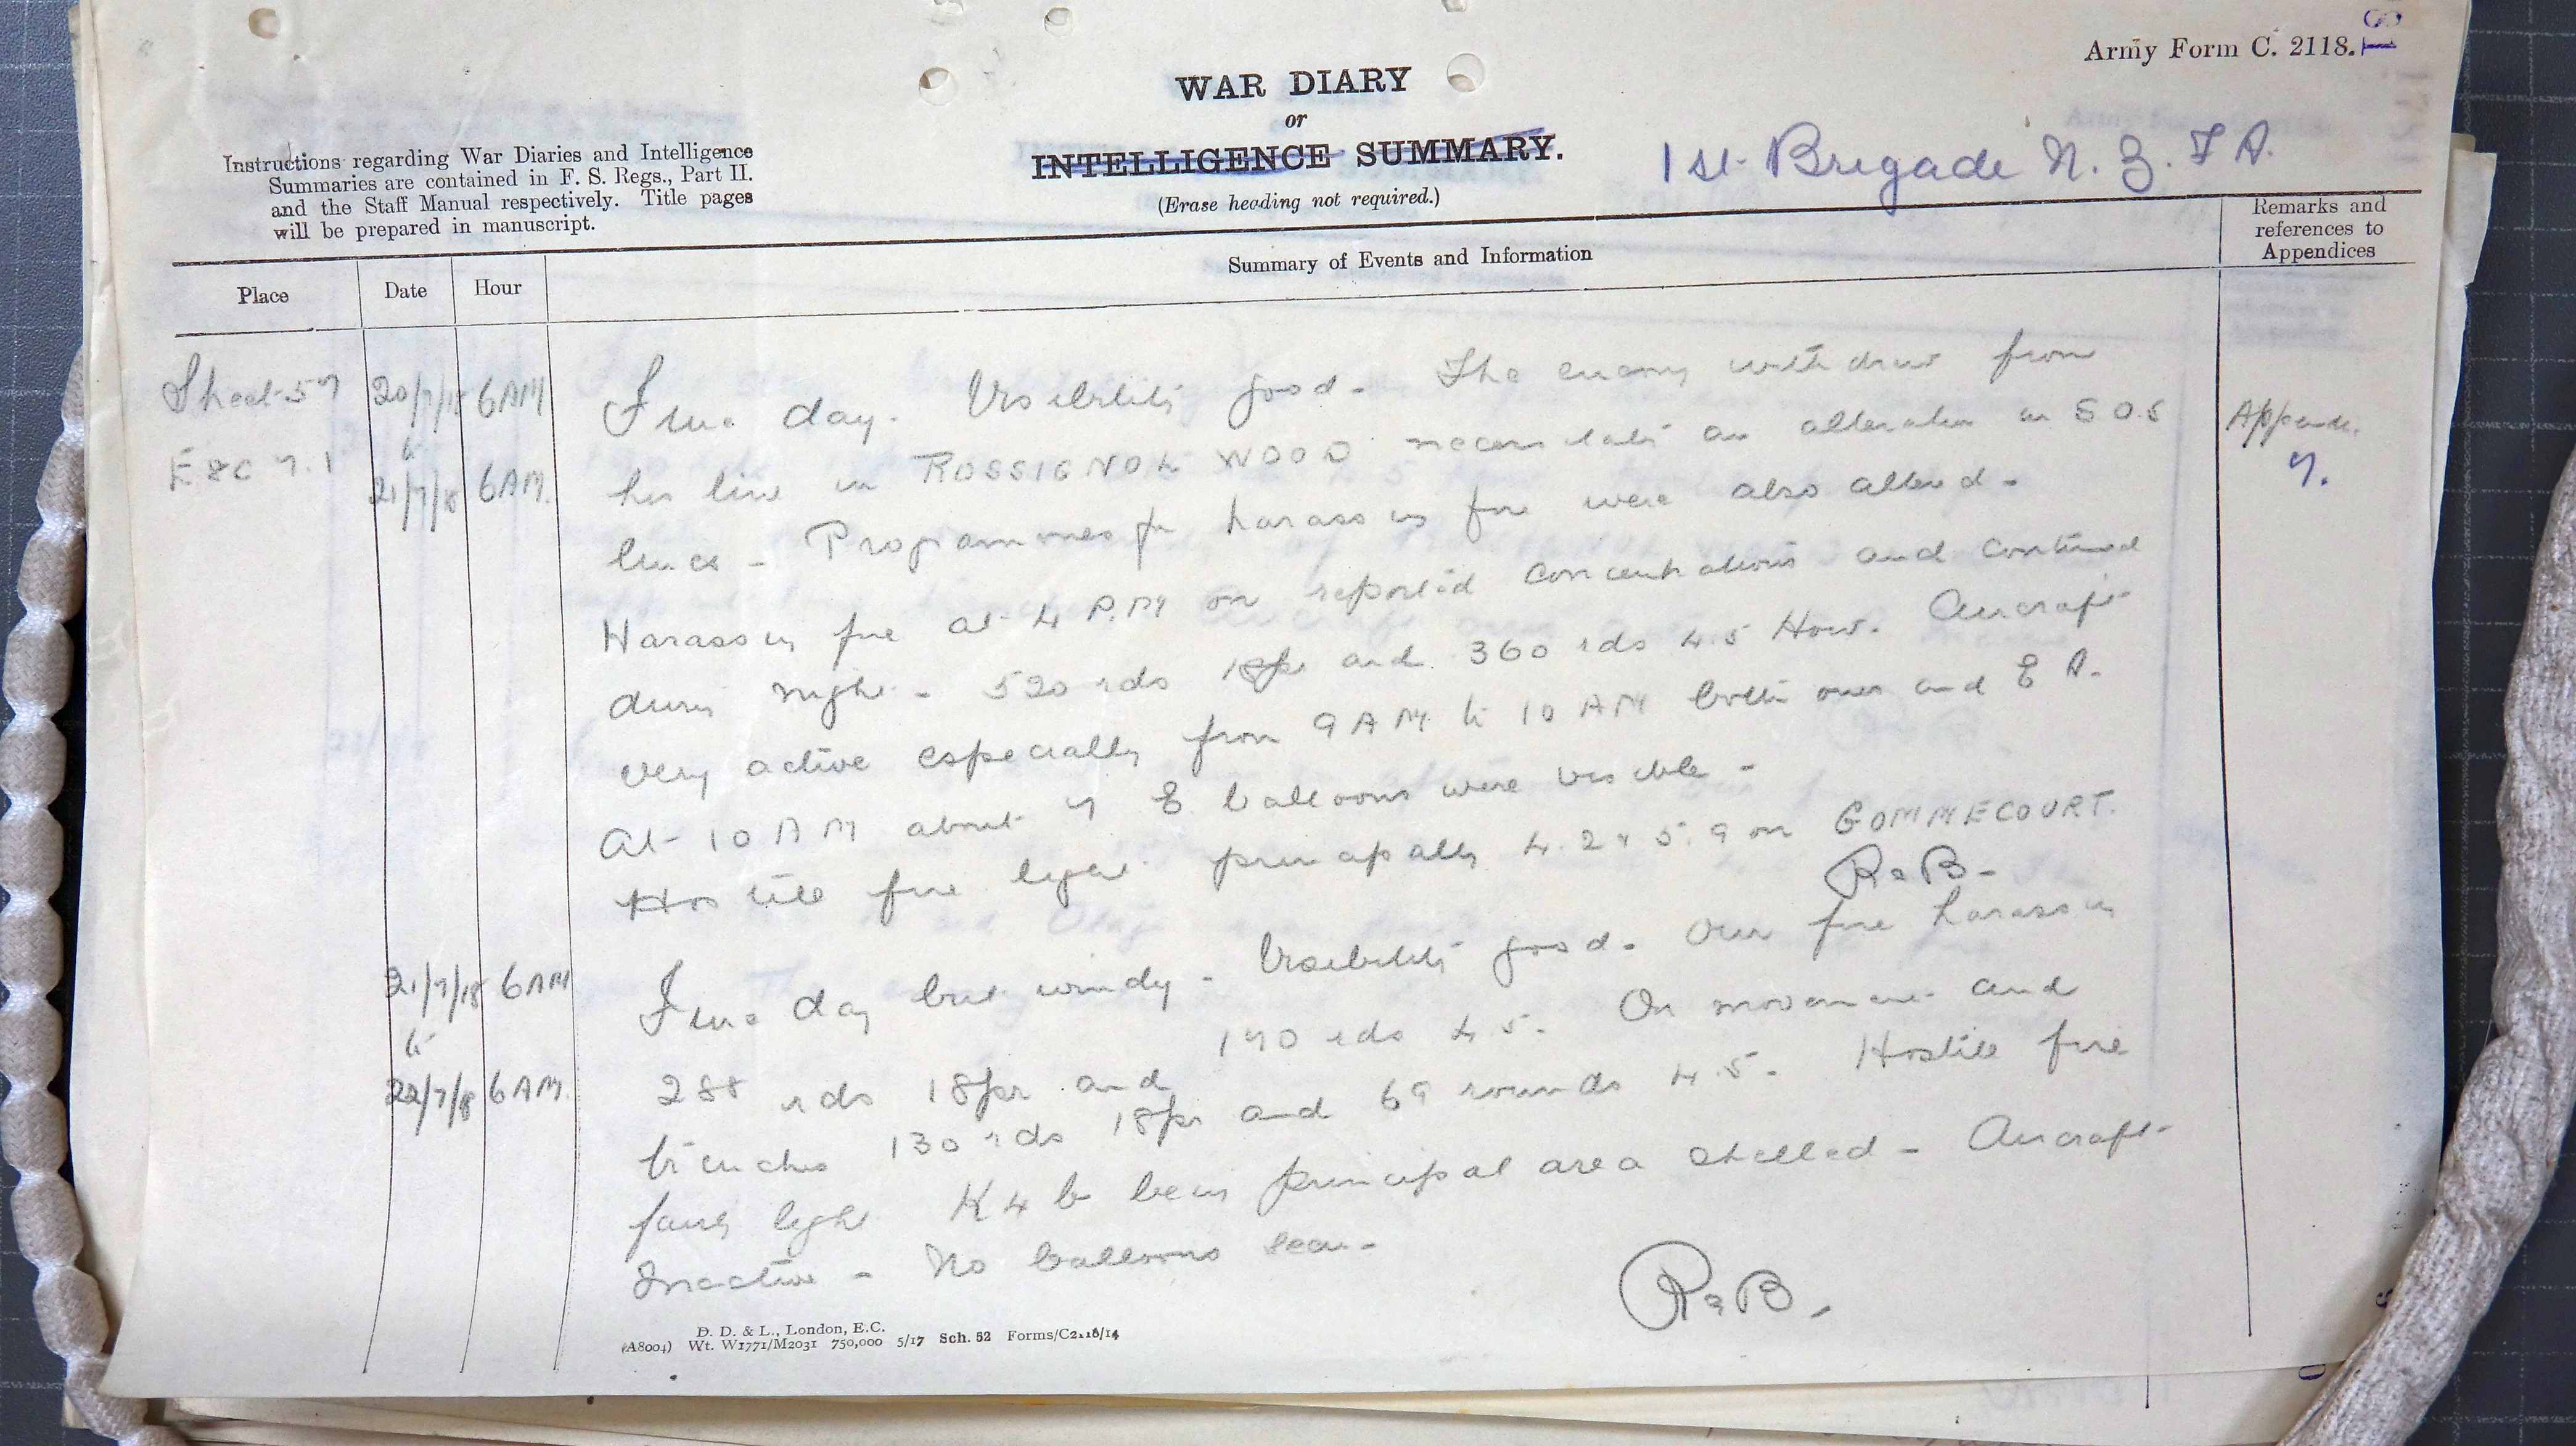 Army Form C. 2118.
WAR DIARY
or
INTELLIGENCE SUMMARY.
(Erase heading not required.)
1st Brigade N. Z. F A.
Instructions regarding War Diaries and Intelligence
Summaries are contained in F. S. Regs., Part II.
and the Staff Manual respectively. Title pages
will be prepared in manuscript.
Place
Date
Hour
Summary of Events and Information
Remarks and
references to
Appendices
Sheet 57
E 8 C 7.1
20/7/18 6AM
to
21/7/18 6AM.
Fine day. Visibility good. The enemy withdraw from
his line in ROSSIGNOL WOOD necessitates an alteration in S O S
lines - Programmes for harassing fire were also altered -
Harassing fire at 4 P.M on reported concentrations and continued
during night - 520 rds 18pr and 360 rds 4.5 How. Aircraft
very active especially from 9 AM to 10 AM both ours and E A.
At 10 AM about 7 E balloons were visible -
Hostile fire light principally 4.2 & 5.9 on GOMMECOURT.
Appendix
7.
21/7/18 6AM
to
22/7/18 6AM.
Fine day but windy - Visibility good. Our fire harassing
288 rds 18pr and 170 rds 4.5. On movement and
trenches 130 rds 18pr and 69 rounds 4.5. Hostile fire
fairly light K 4 b being principal area shelled - Aircraft
Inactive - No balloons seen -
D. D. & L., London, E.C.
(A8004) Wt. W1771/M2031 750,000 5/17 Sch. 52 Forms/C2118/14